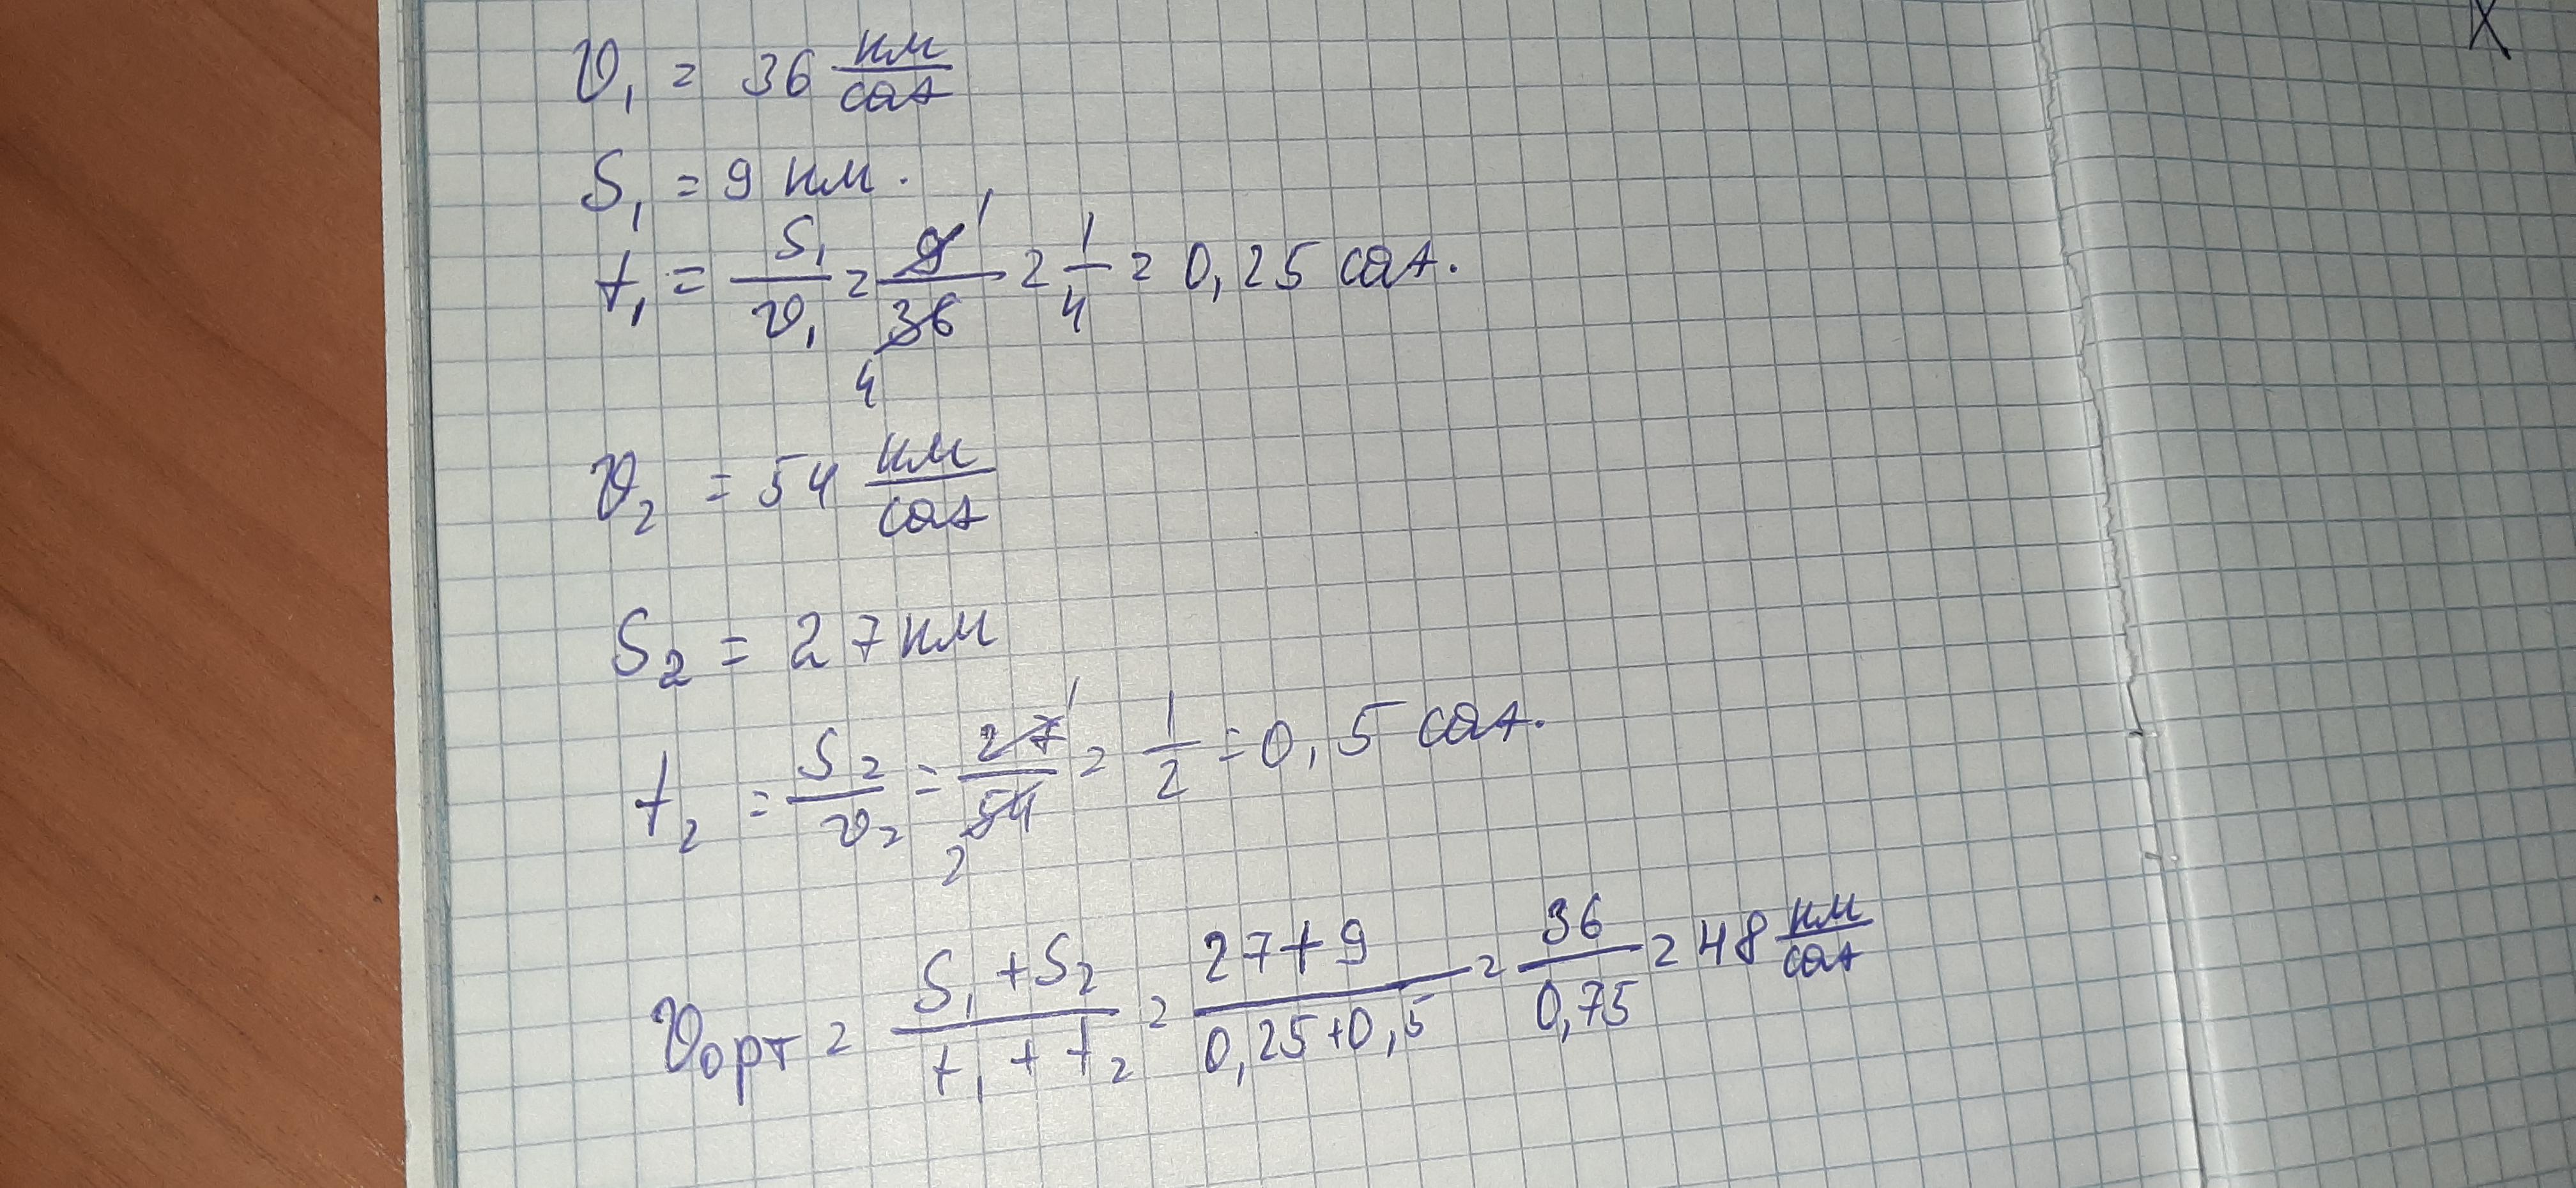 v₁ = 36 км/саг
S₁ = 9 км.
t₁ = S₁/v₁ = 9/36 = 1/4 = 0,25 саг.
v₂ = 54 км/саг
S₂ = 27 км
t₂ = S₂/v₂ = 27/54 = 1/2 = 0,5 саг.
vорт = S₁+S₂/t₁+t₂ = 27+9/0,25+0,5 = 36/0,75 = 48 км/саг